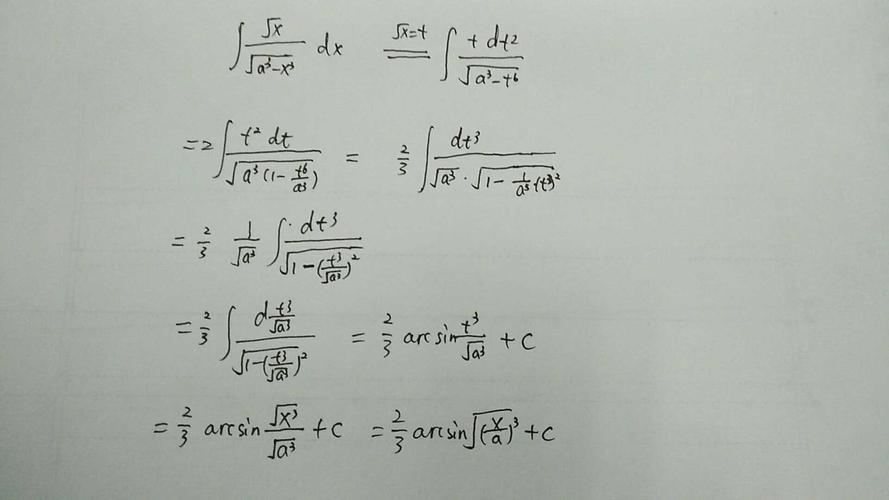 ∫ √x / √(a³-x³) dx  √x=t ∫ t dt² / √(a³-t⁶)
=2∫ t² dt / √(a³(1-t⁶/a³)) = 2/3 ∫ dt³ / (√a³ · √(1-1/a³(t³)²))
= 2/3 1/√a³ ∫ dt³ / √(1-(t³/√a³)²)
= 2/3 ∫ d t³/√a³ / √(1-(t³/√a³)²) = 2/3 arcsin t³/√a³ + C
= 2/3 arcsin √x³/√a³ + C = 2/3 arcsin √(x/a)³ + C